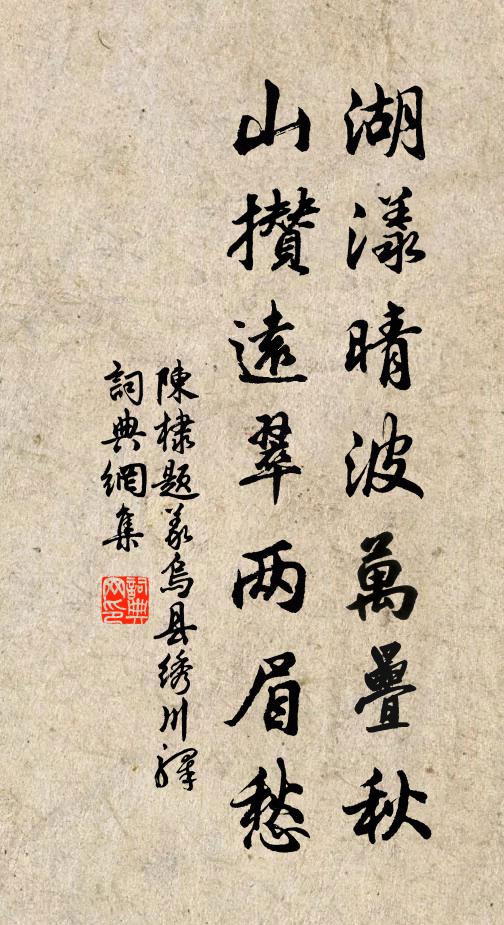 湖漾晴波萬疊秋
山攢遠翠两眉愁
陳棣题義烏县绣川驛
詞典網集
詞典